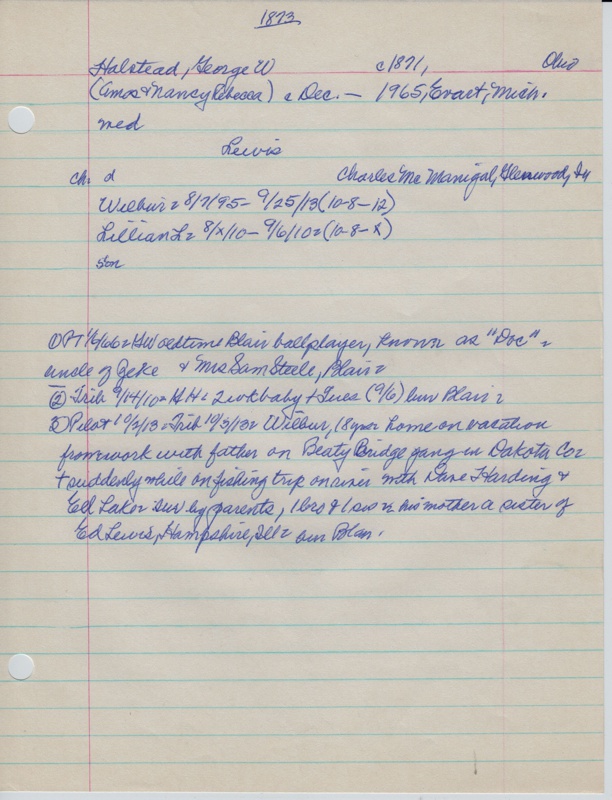 1873
Halstead, George W c1871, Ohio
(Amos & Nancy Rebecca) c Dec. — 1965, Evart, Mich.
med
Lewis
ch. d Charles Mc Manigal, Glenwood, Ia
Wilbur = 8/7/95 - 9/25/13 (10-8-12)
Lillian L = 8/x/10 - 9/6/10 = (10-8-x)
son
① PT 1/6/66 = GW oldtime Blair ballplayer, known as "Doc" =
uncle of Zeke & Mrs Sam Steele, Blair =
② Trib 9/14/10 = HH's 2 wk baby + Tues (9/6) bur Blair =
③ Pilot 10/2/13 = Trib 10/3/13 = Wilbur, 18 yrs = home on vacation
from work with father on Beaty Bridge gang in Dakota Co =
+ suddenly while on fishing trip on river with Dave Harding &
Ed Laker = sur by parents, 1 bro & 1 sis = his mother a sister of
Ed Lewis, Hampshire, Ill = bur Blair.